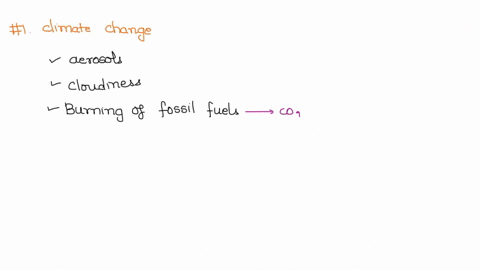 #1. climate change
✓ aerosols
✓ cloudiness
✓ Burning of fossil fuels → CO,